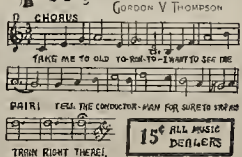 GORDON V THOMPSON
D CHORUS
TAKE ME TO OLD TO-RON-TO-I WANT TO SEE THE
PAIR! TELL THE CONDUCTOR-MAN FOR SURE TO STOP HIS
TRAIN RIGHT THERE!.
15¢ ALL MUSIC
DEALERS